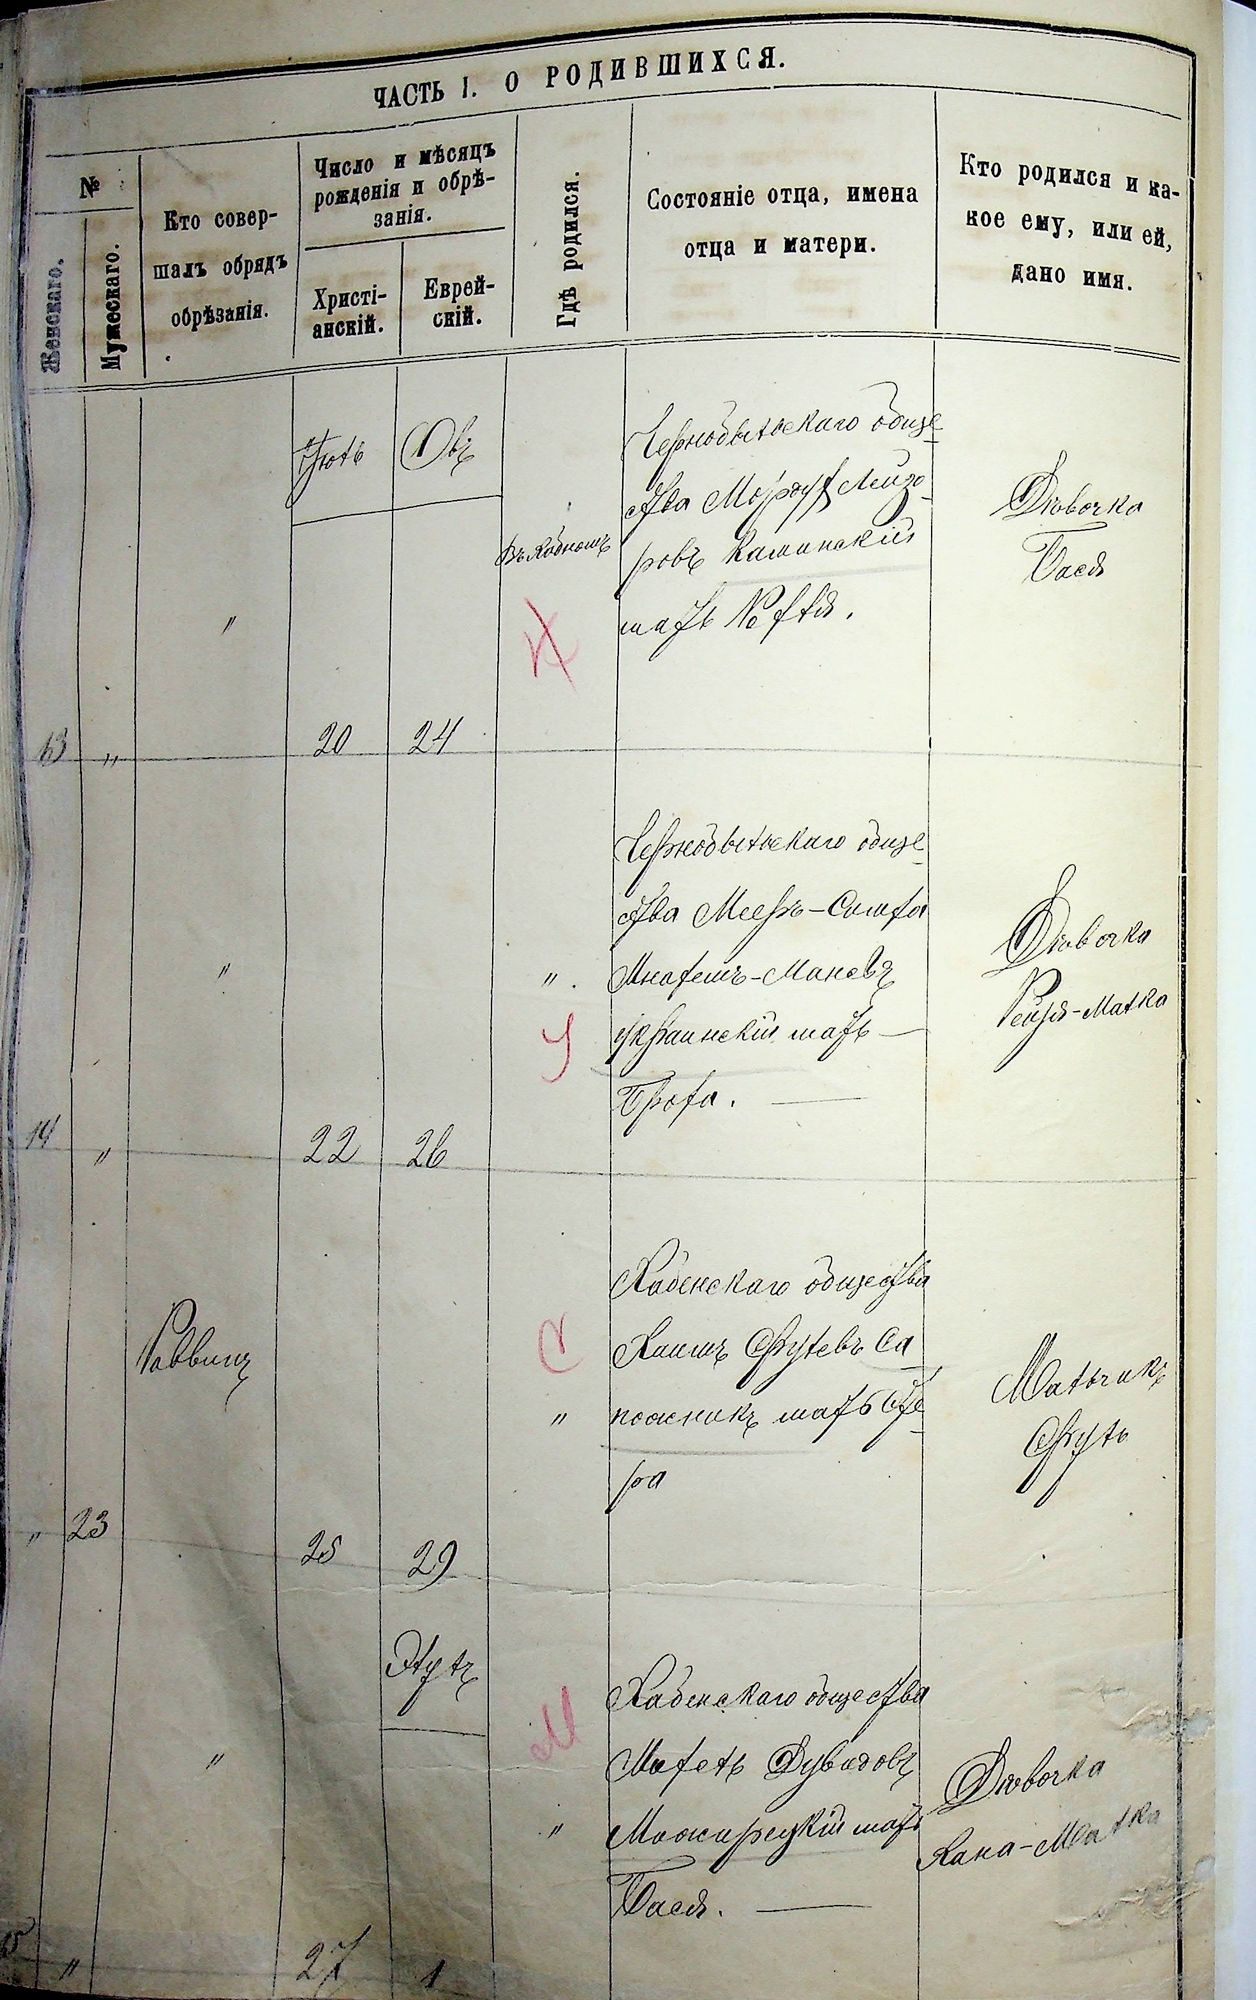 ЧАСТЬ I. О РОДИВШИХСЯ.
№
Женскаго.
Мужескаго.
Кто совер-
шалъ обрядъ
обрѣзанія.
Число и мѣсяцъ
рожденія и обрѣ-
занія.
Христі-
анскій.
Еврей-
скій.
Гдѣ родился.
Состояніе отца, имена
отца и матери.
Кто родился и ка-
кое ему, или ей,
дано имя.
13
"
"
Іюль
20
Овъ
24
К
Чернобыльскаго обще-
ства Мордух Лейзо-
ровъ Каминскій
мать
Дѣвочка
Бася
14
"
"
22
26
"
У
Чернобыльскаго обще-
ства Мееръ-Симха
Мнахемъ-Маневъ
Украинскій мать —
Броха. —
Дѣвочка
Рейзя-Малка
"
23
Раввинъ
25
29
С
"
Хабенскаго общества
Хаимъ Срулевъ Са-
пожникъ мать Сте-
ра
Мальчикъ
Сруль
15
"
"
27
Элулъ
1
М
"
Хабенскаго общества
Михель Дувидовъ
Можирецкій мать
Бася. —
Дѣвочка
Хана-Малка